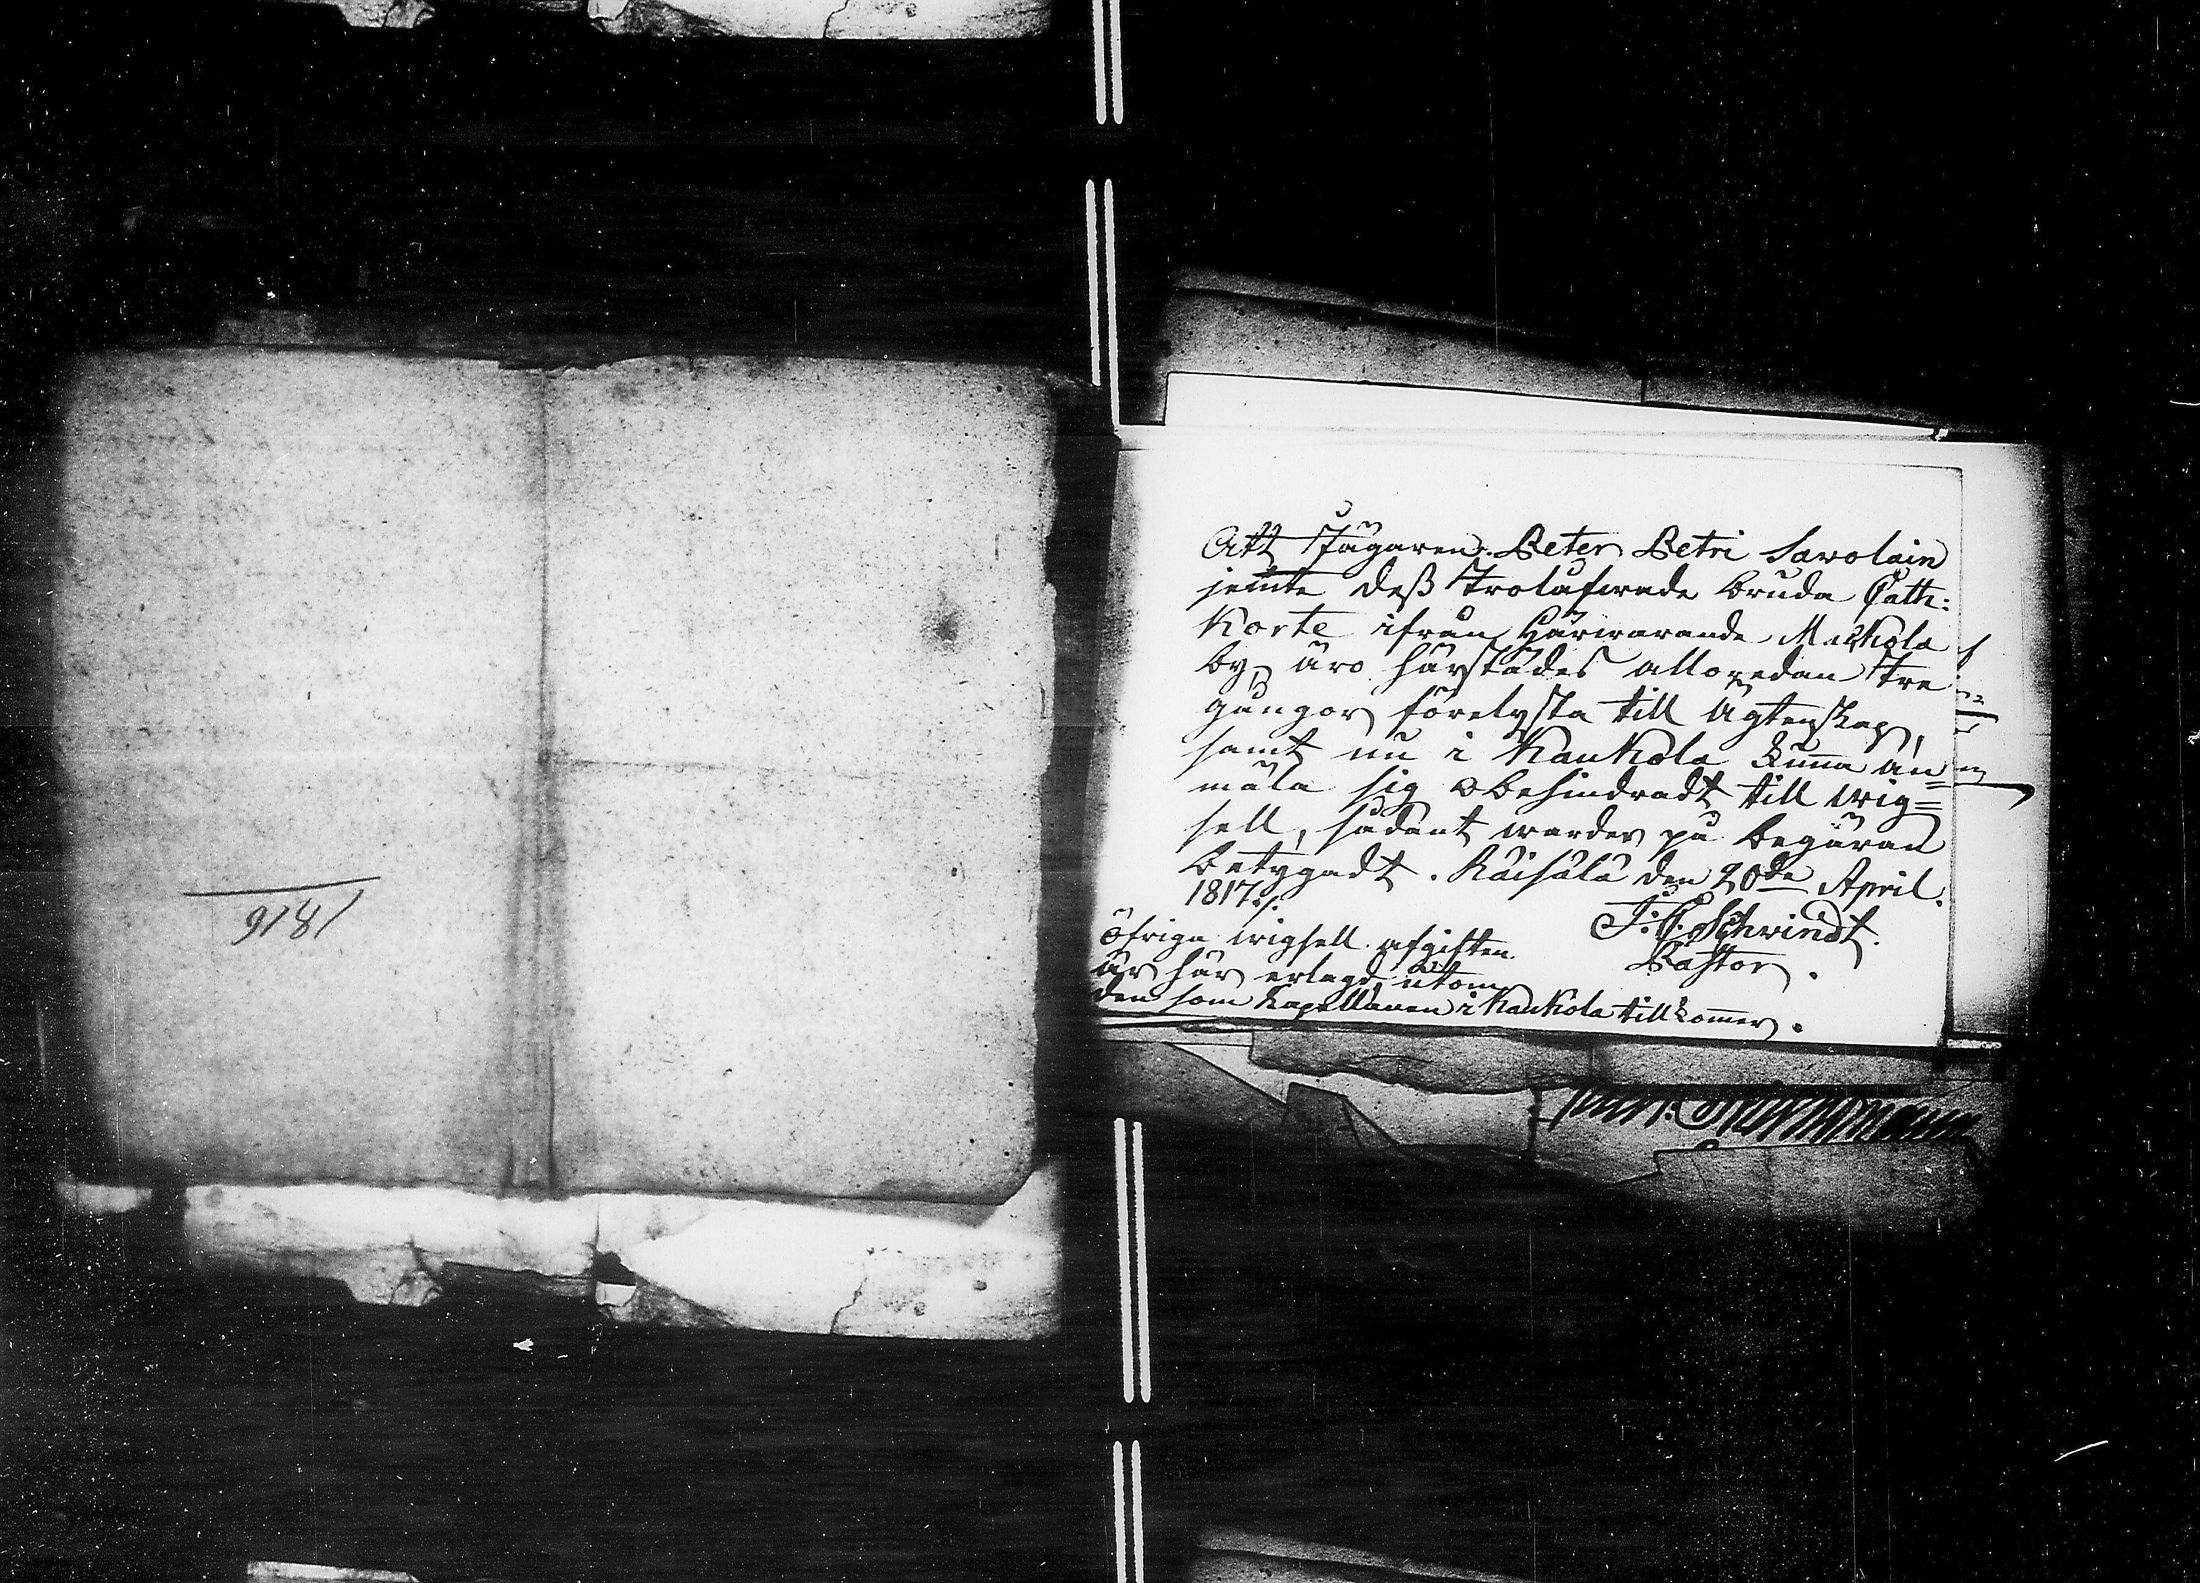 1816
Att Jägaren Peter Petri Sawolain
jemte deß trolåfwade bruda Cath:
Korte ifrån härwarande Mäkola
by, äro härstädes alloredan tre
gångor förelysta till Ägtenskap,
samt nu i Kaukola kuña an=
mäla sig obehindradt till wig=
sell, sådant warder på begäran
betygadt. Räisälä den 20de April.
1817./.
J: C: Schwindt.
Pastor.
öfriga wigsell afgiften
är här erlagd, utom
den som Kapellanen i Kaukola tillkom̃er.